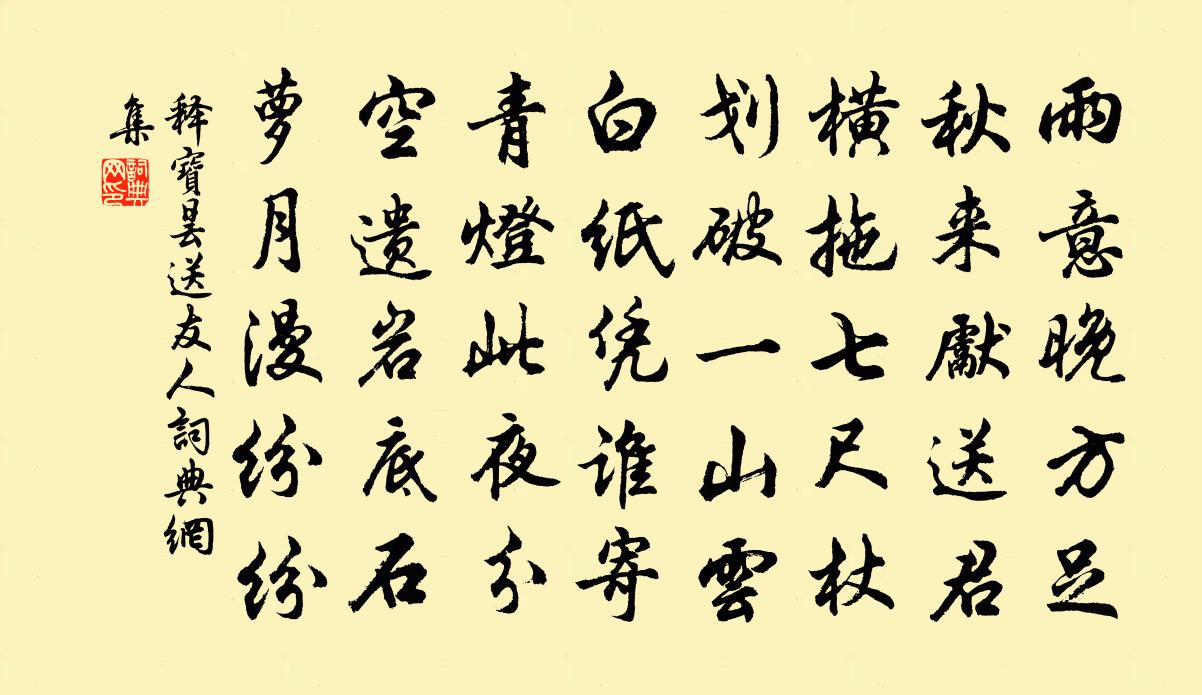 雨意晚方足
秋来獻送君
横拖七尺杖
划破一山雲
白纸凭谁寄
青燈此夜分
空遗岩底石
萝月漫纷纷
释寶昙送友人詞典網
集
詞典網印